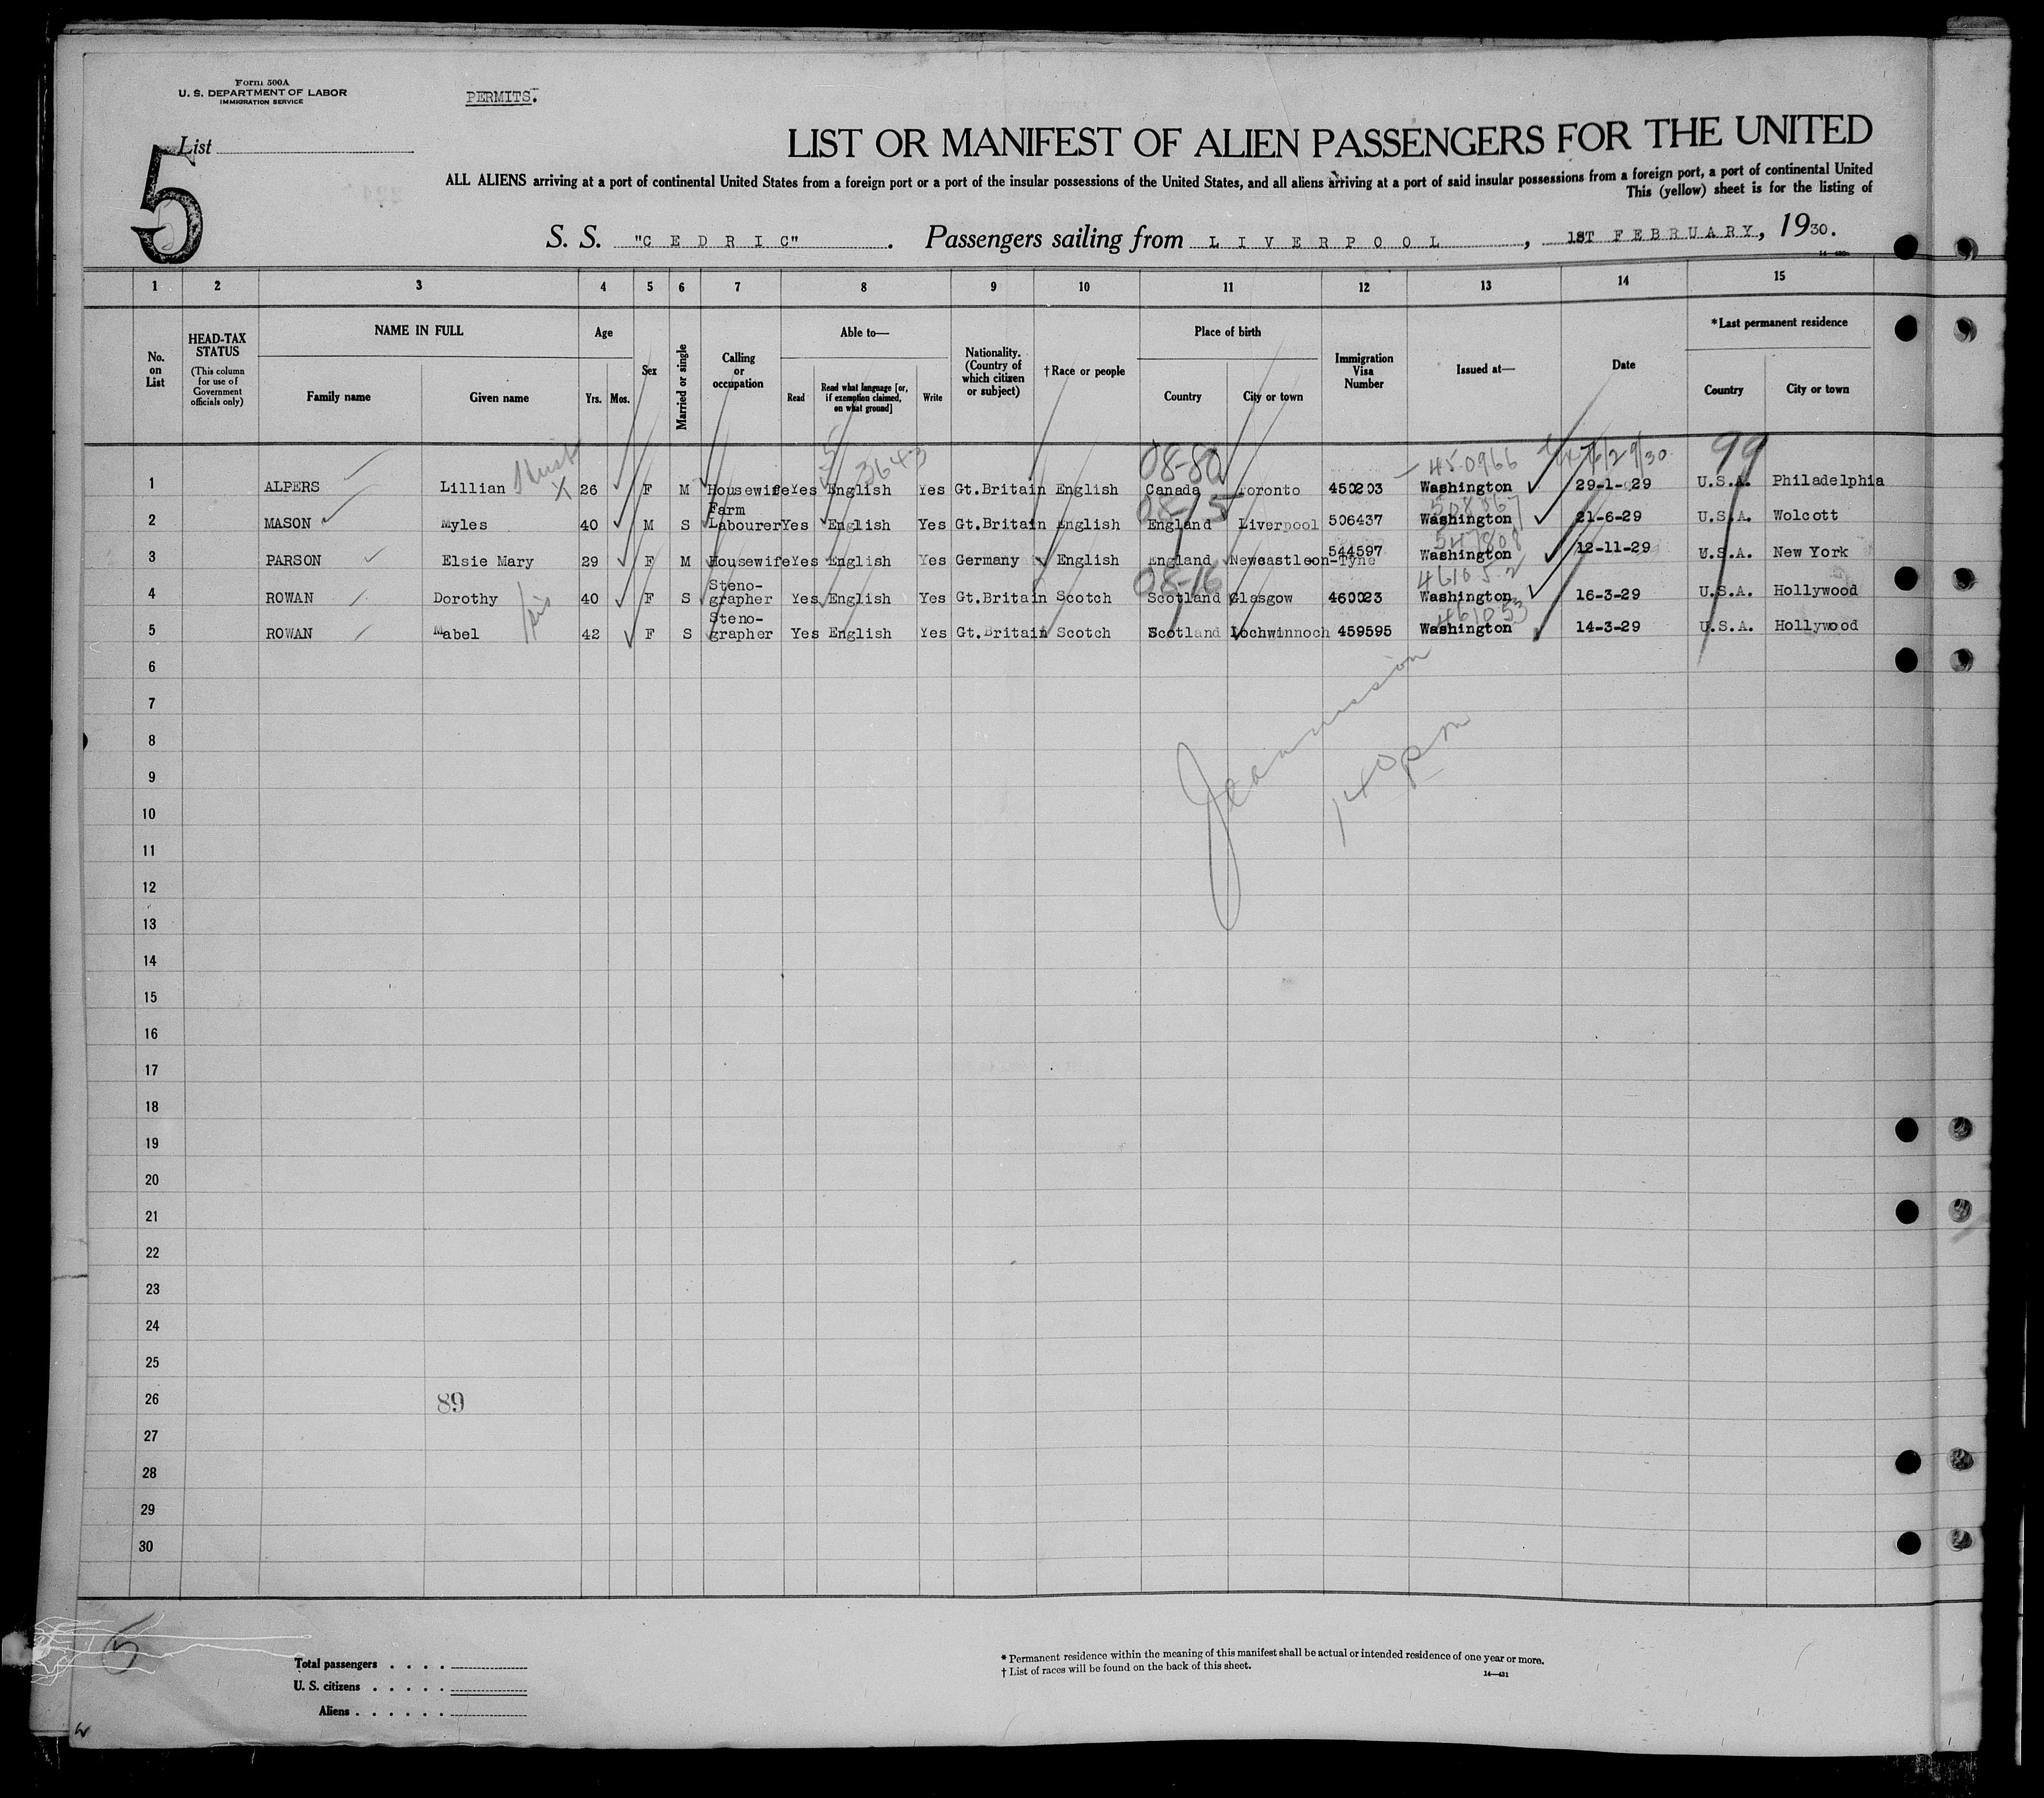 Form 500A
U. S. DEPARTMENT OF LABOR
IMMIGRATION SERVICE
PERMITS.
List
5
LIST OR MANIFEST OF ALIEN PASSENGERS FOR THE UNITED
ALL ALIENS arriving at a port of continental United States from a foreign port or a port of the insular possessions of the United States, and all aliens arriving at a port of said insular possessions from a foreign port, a port of continental United
This (yellow) sheet is for the listing of
S. S. "C E D R I C" . Passengers sailing from L I V E R P O O L , 1ST F E B R U A R Y, 1930.
1 2 3 4 5 6 7 8 9 10 11 12 13 14 15
No. on List
HEAD-TAX STATUS
(This column for use of Government officials only)
NAME IN FULL
Family name Given name
Age
Yrs. Mos.
Sex
Married or single
Calling or occupation
Able to—
Read Read what language [or, if exemption claimed, on what ground] Write
Nationality. (Country of which citizen or subject)
† Race or people
Place of birth
Country City or town
Immigration Visa Number
Issued at—
Date
*Last permanent residence
Country City or town
3643 08-80 450966 99
1 ALPERS Lillian X 26 F M Housewife Yes English Yes Gt.Britain English Canada Toronto 450203 Washington 29-1-29 U.S.A. Philadelphia
08-15
2 MASON Myles 40 M S Farm Labourer Yes English Yes Gt.Britain English England Liverpool 506437 Washington 21-6-29 U.S.A. Wolcott
3 PARSON Elsie Mary 29 F M Housewife Yes English Yes Germany English England Newcastle on-Tyne 544597 Washington 12-11-29 U.S.A. New York
08-16 461052
4 ROWAN Dorothy 40 F S Steno-grapher Yes English Yes Gt.Britain Scotch Scotland Glasgow 460023 Washington 16-3-29 U.S.A. Hollywood
461053
5 ROWAN Mabel 42 F S Steno-grapher Yes English Yes Gt.Britain Scotch Scotland Lochwinnoch 459595 Washington 14-3-29 U.S.A. Hollywood
6
7
8
9
10
11
12
13
14
15
16
17
18
19
20
21
22
23
24
25
26 89
27
28
29
30
140pm
5
Total passengers . . . .
U. S. citizens . . . . .
Aliens . . . . . .
* Permanent residence within the meaning of this manifest shall be actual or intended residence of one year or more.
† List of races will be found on the back of this sheet.
14—431